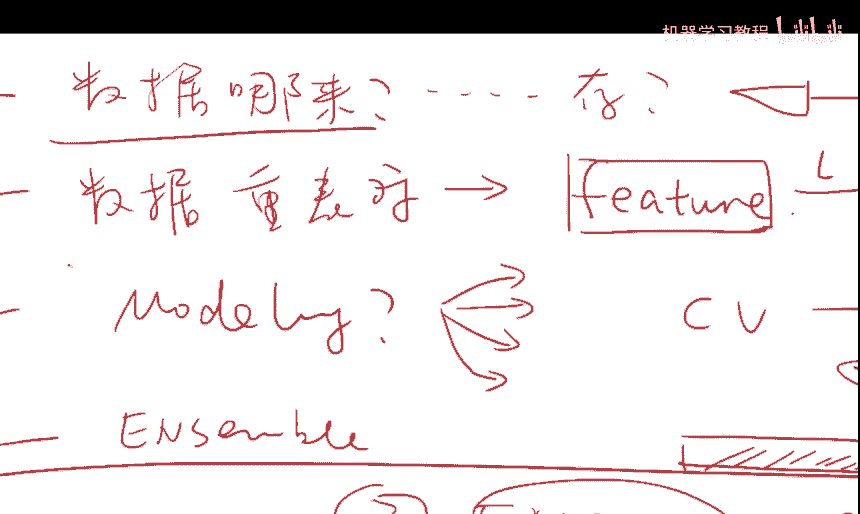 机器学习教程 bilibili
数据哪来? ---- 存?
数据重表示 → feature L
Modeling? CV
Ensemble